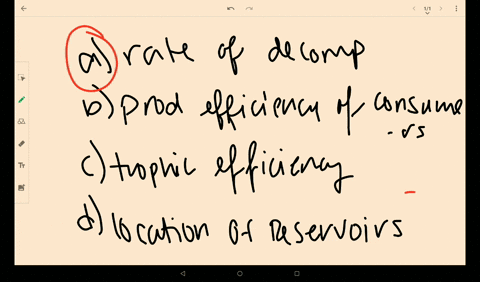 1/1
a) rate of decomp
b) prod efficiency of consume
-rs
c) trophic efficiency
d) location of reservoirs